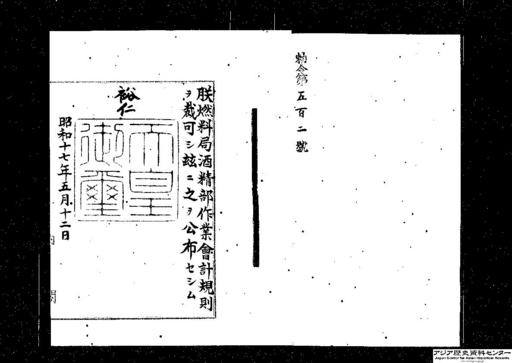 勅令第五百二號
朕燃料局酒精部作業會計規則
ヲ裁可シ玆ニ之ヲ公布セシム
裕仁
天皇
御璽
昭和十七年五月十二日
内閣
アジア歴史資料センター
Japan Center for Asian Historical Records